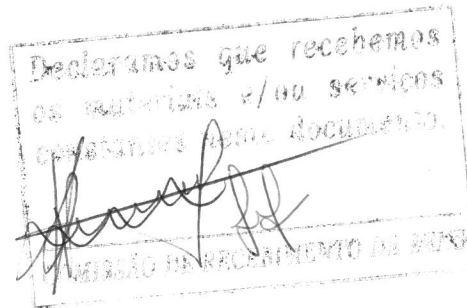 Declaramos que recebemos
os materiais e/ou serviços
constantes neste documento.
MISSÃO DE RECEBIMENTO DA